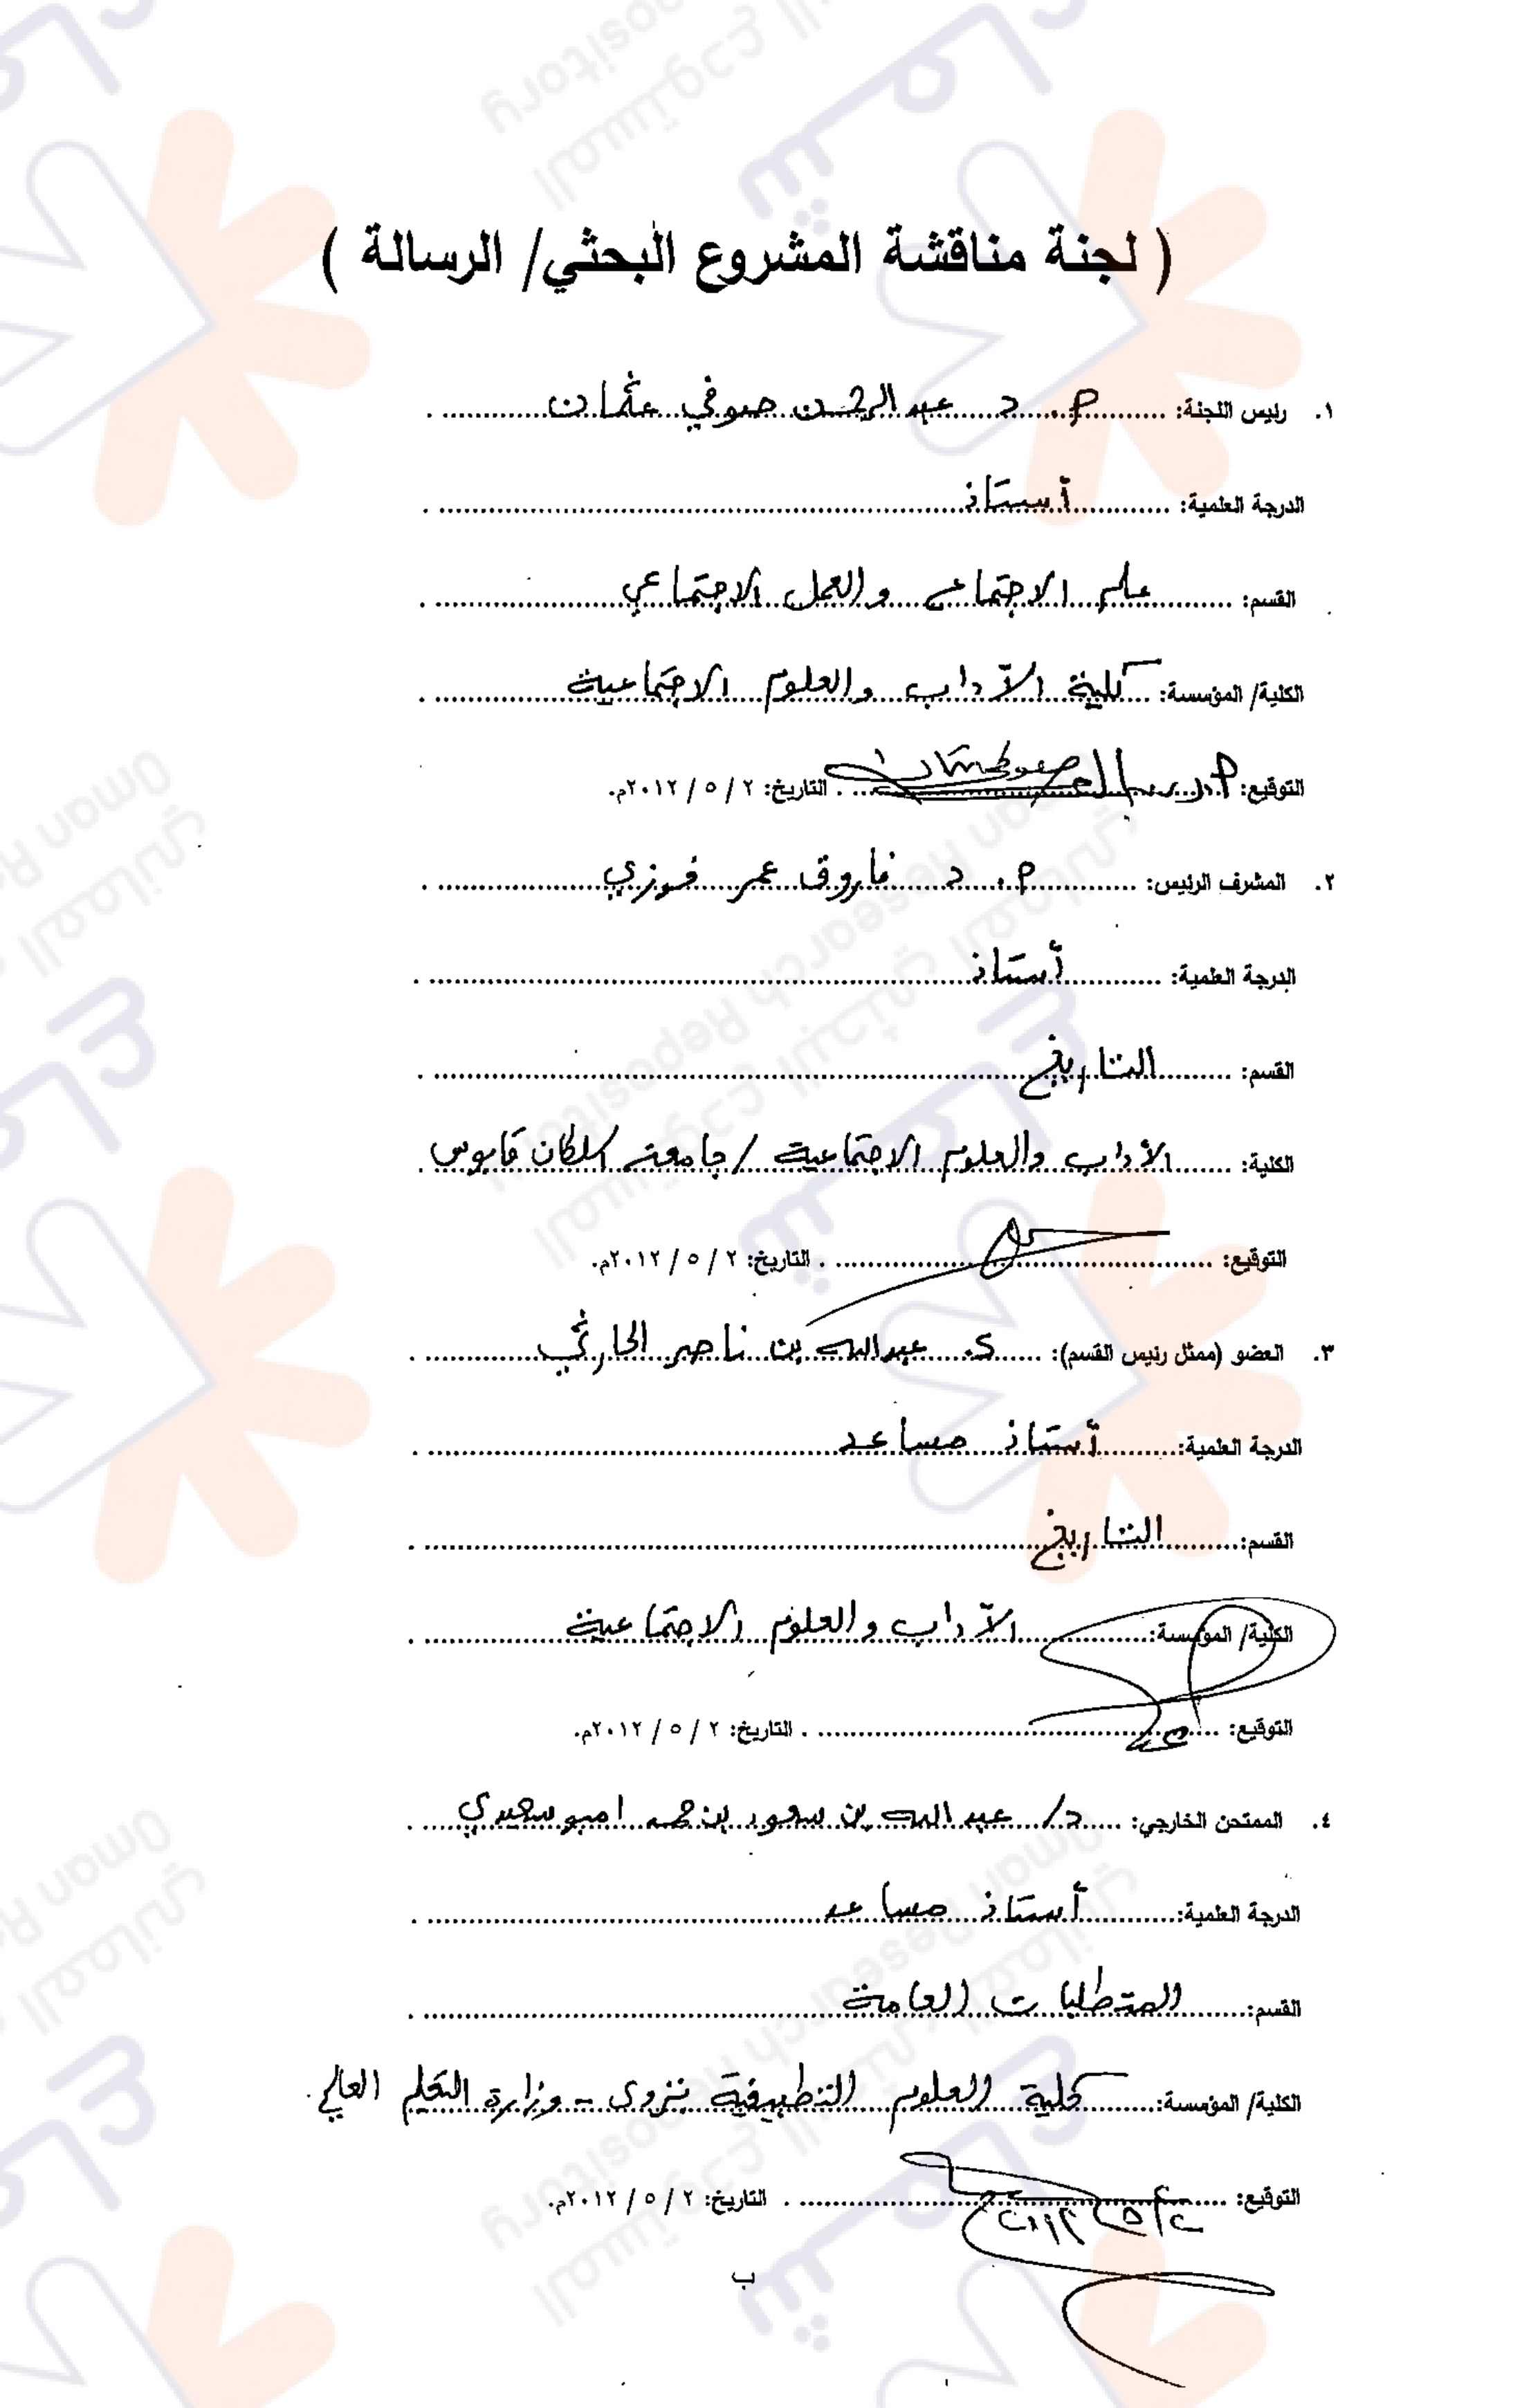 ( لجنة مناقشة المشروع البحثي/ الرسالة )
١. رئيس اللجنة: م. د عبدالرحمن صوفي عثمان
الدرجة العلمية: أستاذ
القسم: علم الاجتماع والعمل الاجتماعي
الكلية/ المؤسسة: كلية الآداب والعلوم الاجتماعية
التوقيع: التاريخ: ٢ / ٥ / ٢٠١٢م.
٢. المشرف الرئيس: م. د فاروق عمر فوزي
الدرجة العلمية: أستاذ
القسم: التاريخ
الكلية: الآداب والعلوم الاجتماعية / جامعة السلطان قابوس
التوقيع: التاريخ: ٢ / ٥ / ٢٠١٢م.
٣. العضو (ممثل رئيس القسم): د. عبدالله بن ناصر الحارثي
الدرجة العلمية: أستاذ مساعد
القسم: التاريخ
الكلية/ المؤسسة: الآداب والعلوم الاجتماعية
التوقيع: التاريخ: ٢ / ٥ / ٢٠١٢م.
٤. الممتحن الخارجي: د/ عبدالله بن سعود بن حمد امبوسعيدي
الدرجة العلمية: أستاذ مساعد
القسم: المتطلبات العامة
الكلية/ المؤسسة: كلية العلوم التطبيقية بنزوى - وزارة التعليم العالي.
التوقيع: التاريخ: ٢ / ٥ / ٢٠١٢م.
ب